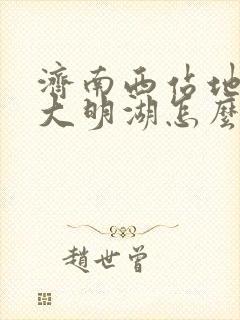 濟南西佔地
大明湖怎麼
趙世曾